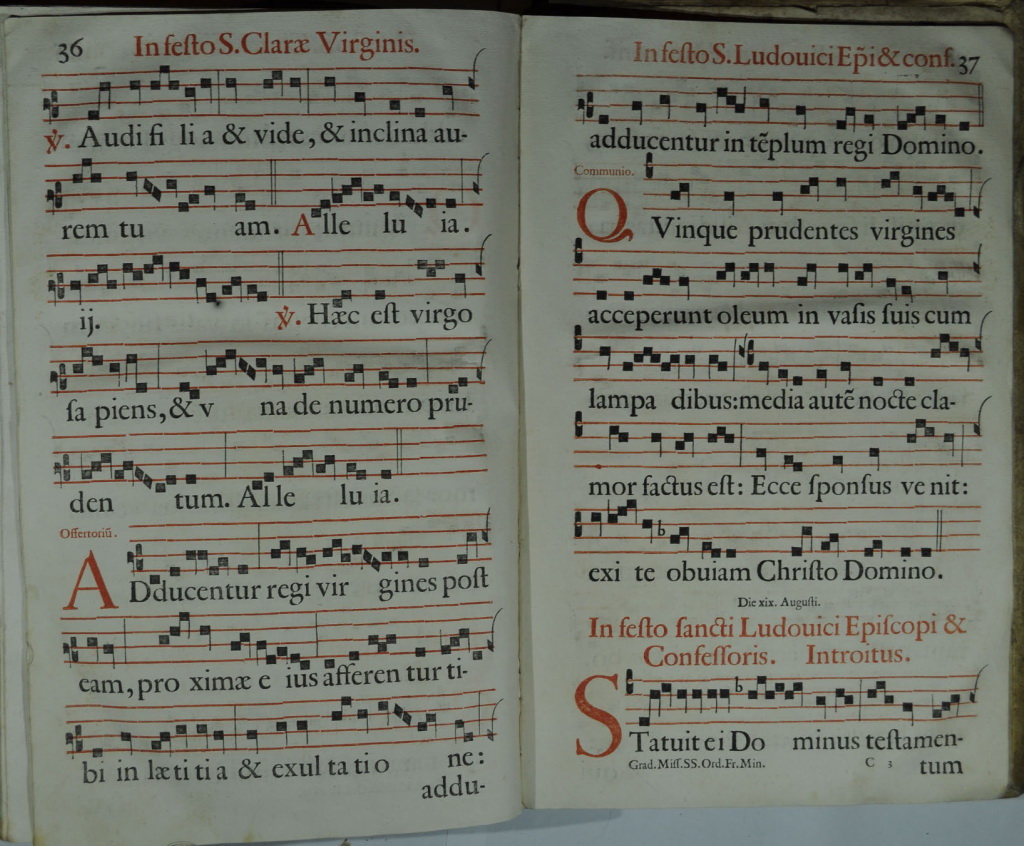 36 In festo S. Claræ Virginis.
℣. Audi fi li a & vide, & inclina au-
rem tu am. Alle lu ia.
ij. ℣. Hæc est virgo
sa piens, & v na de numero pru-
den tum. Al le lu ia.
Offertoriũ.
ADducentur regi vir gines post
eam, pro ximæ e ius afferen tur ti-
bi in læti ti a & exul ta ti o ne:
addu-
In festo S. Ludouici Ep̃i & conf. 37
adducentur in tẽplum regi Domino.
Communio.
QVinque prudentes virgines
acceperunt oleum in vasis suis cum
lampa dibus: media autẽ nocte cla-
mor factus est: Ecce sponsus ve nit:
exi te obuiam Christo Domino.
Die xix. Augusti.
In festo sancti Ludouici Episcopi &
Confessoris. Introitus.
STatuit ei Do minus testamen-
Grad. Miss. SS. Ord. Fr. Min. C 3 tum